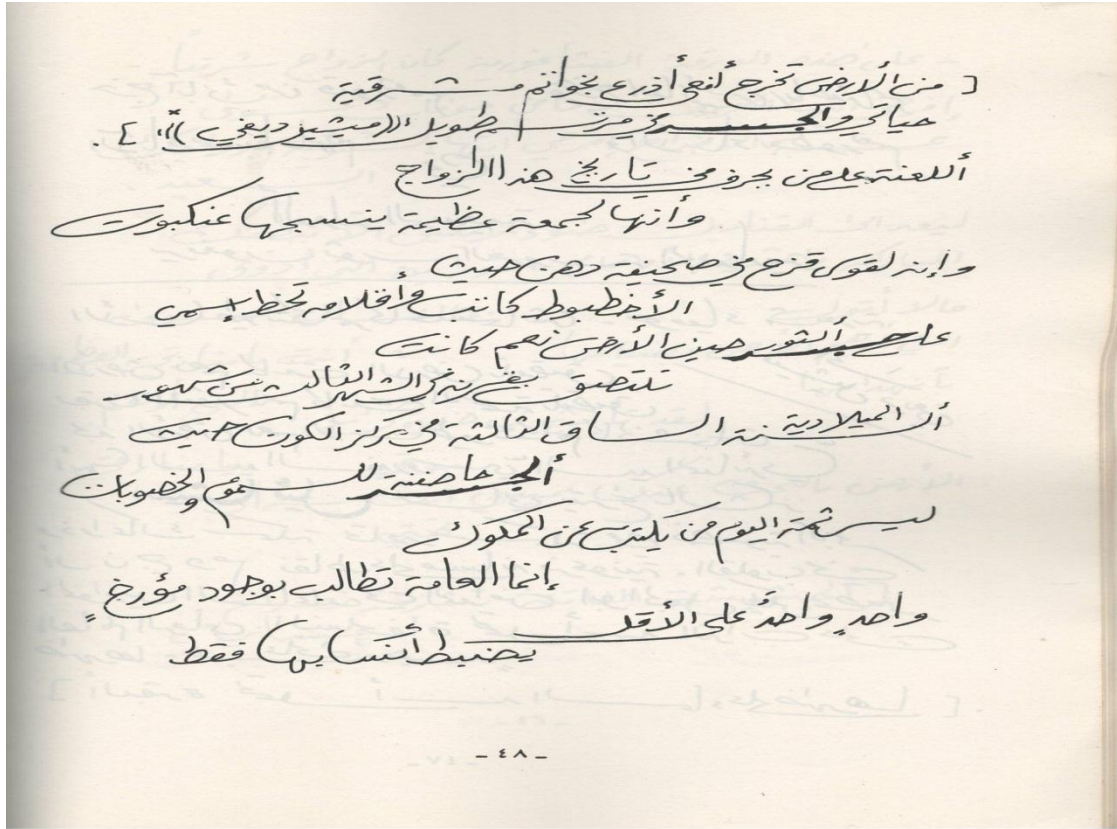 [ من الأرض تخرج أفعى أذرع بخواتم مشرقية
حياتي والجسد في مرثـ طويل «ميشيل ديغي» ].
أللعنة على من يحرف في تاريخ هذا الزواج
وأنها لجمعة عظيمة ينسجها عنكبوت
وإنه لقوس قزح في صحيفة دهن حيث
الأخطبوط كاتب وأقلامه تخط إسمي
على جسد ألثور حين الأرض نعم كانت
تلتصق بقرنه في الشهر الثالث من شهور
ألسنة الميلادية الساق الثالثة في مركز الكون حيث
ألجسد حاضنة للسموم والخصوبات
ليس ثمة اليوم من يكتب عن الملوك
إنما العامة تطالب بوجود مؤرخٍ
واحدٍ واحدٌ على الأقل
يضبط أنسابها فقط
- ٤٨ -